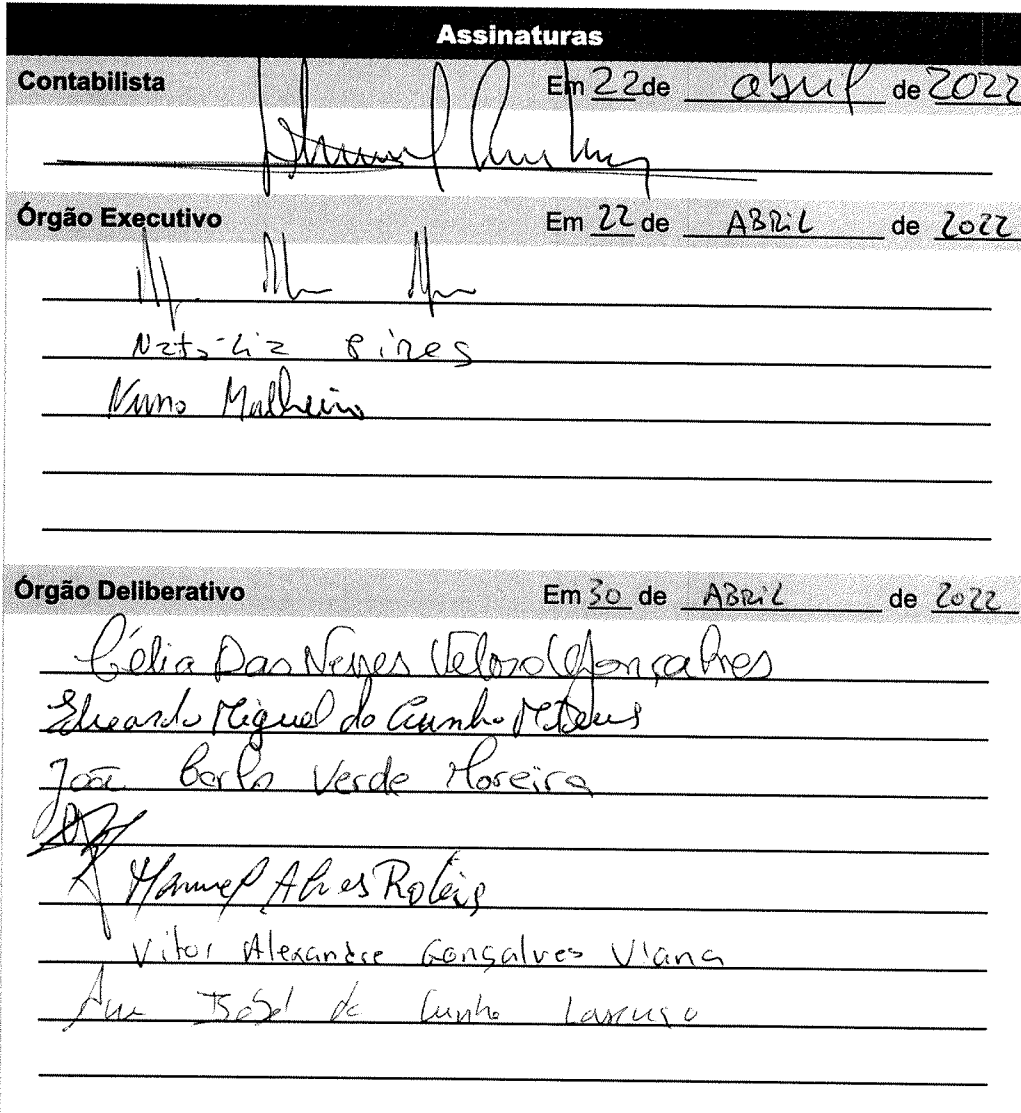 Assinaturas
Contabilista Em 22 de abril de 2022
Manuel
Órgão Executivo Em 22 de ABRIL de 2022
Natália Pires
Nuno Malheiro
Órgão Deliberativo Em 30 de ABRIL de 2022
Célia Das Neves Veloso Gonçalves
Eduardo Miguel da Cunha Mateus
João Carlos Verde Moreira
Manuel Alves
Vitor Alexandre Gonçalves Viana
Ana Isabel da Cunha Lourenço